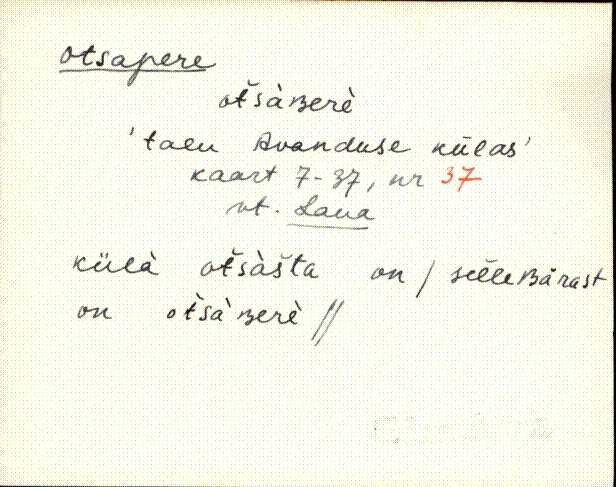 otsapere
otšàʙerè
'talu Avanduse külas'
kaart 7-37, nr 37
vt. Laua
külà otšàšta on / sèlleʙärast
on otšàʙerè //